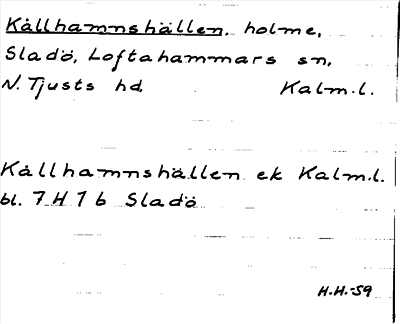 Kållhamnshällen, holme,
Sladö, Loftahammars sn,
N. Tjusts hd. Kalm.l.
Kållhamnshällen ek Kalm.l.
bl. 7 H 7 b Sladö
H.H.-59